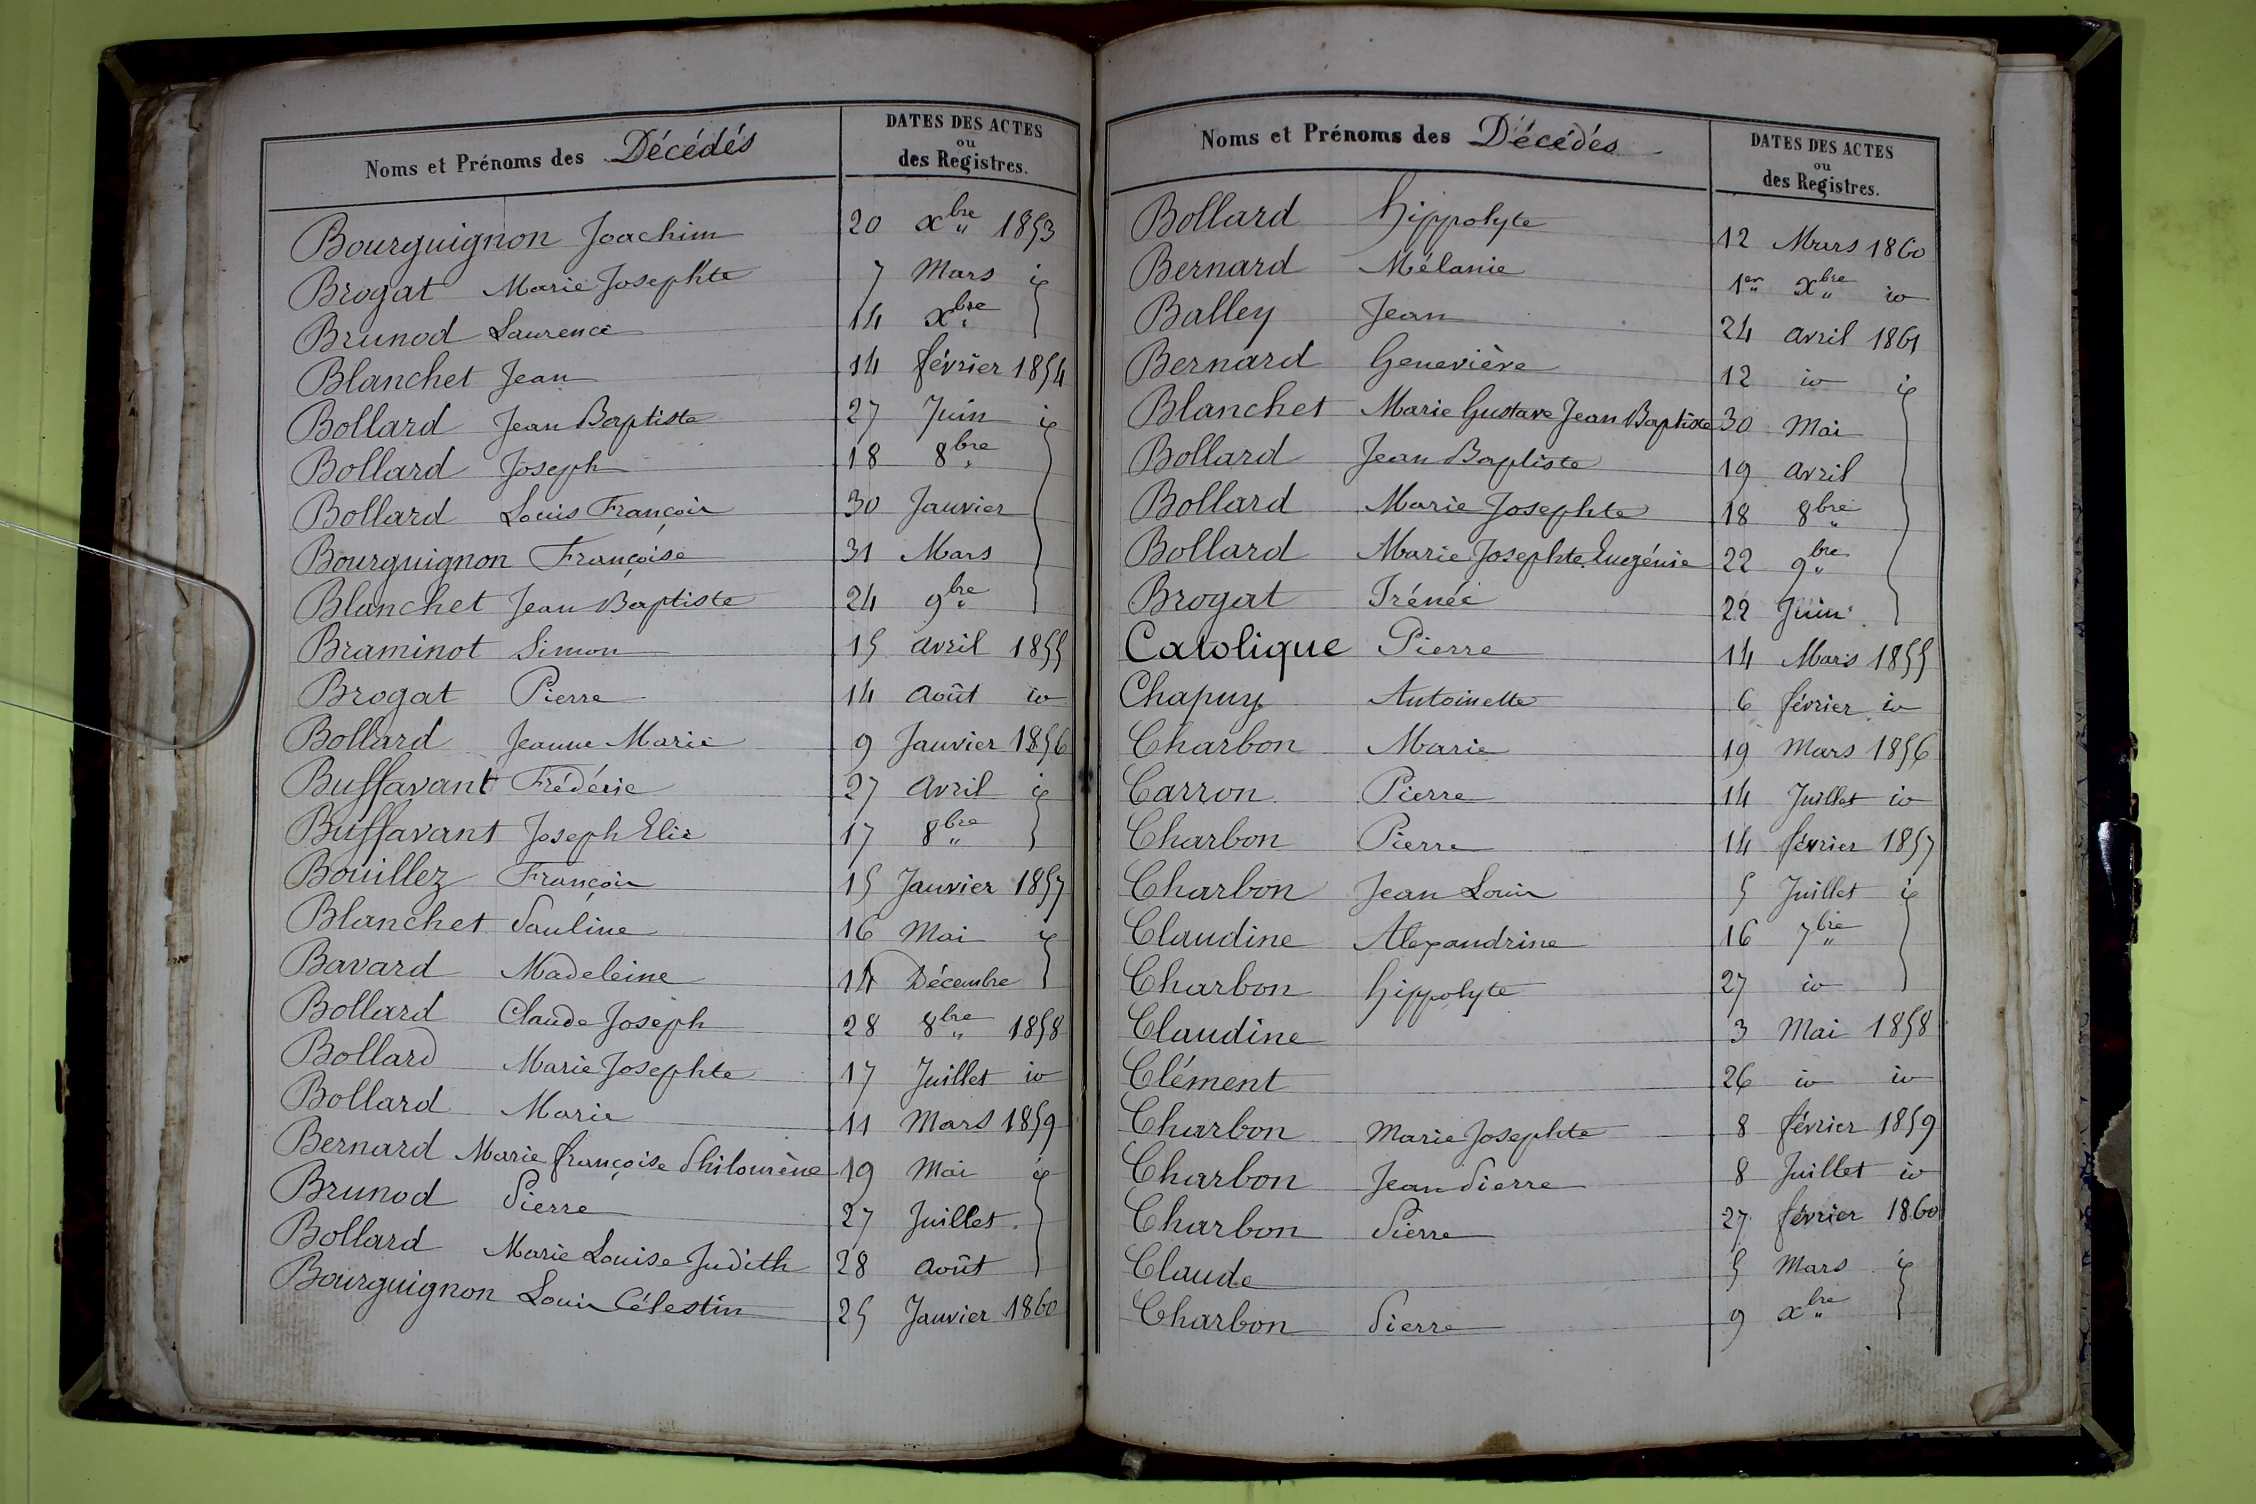 Noms et Prénoms des Décédés
DATES DES ACTES
ou
des Registres.
Bourguignon Joachim 20 xbre 1853
Brogat Marie Josephte 7 Mars id
Brunod Laurence 14 xbre
Blanchet Jean 14 février 1854
Bollard Jean Baptiste 27 Juin id
Bollard Joseph 18 8bre
Bollard Louis François 30 Janvier
Bourguignon Françoise 31 Mars
Blanchet Jean Baptiste 24 9bre
Braminot Simon 15 avril 1855
Brogat Pierre 14 août id
Bollard Jeanne Marie 9 Janvier 1856
Buffavant Frédéric 27 Avril id
Buffavant Joseph Elie 17 8bre
Bouillez François 15 Janvier 1857
Blanchet Pauline 16 Mai id
Bavard Madeleine 14 Décembre
Bollard Claude Joseph 28 8bre 1858
Bollard Marie Josephte 17 Juillet id
Bollard Marie 11 Mars 1859
Bernard Marie françoise Philomène 19 Mai id
Brunod Pierre 27 Juillet
Bollard Marie Louise Judith 28 août
Bourguignon Louis Célestin 25 Janvier 1860
Noms et Prénoms des Décédés
DATES DES ACTES
ou
des Registres.
Bollard hippolyte 12 Mars 1860
Bernard Mélanie 1er xbre id
Balley Jean 24 avril 1861
Bernard Geneviève 12 id id
Blanchet Marie Gustave Jean Baptiste 30 Mai
Bollard Jean Baptiste 19 avril
Bollard Marie Josephte 18 8bre
Bollard Marie Josephte Eugénie 22 9bre
Brogat Irénée 22 Juin
Catolique Pierre 14 Mars 1855
Chapuy Antoinette 6 février id
Charbon Marie 19 Mars 1856
Carron Pierre 14 Juillet id
Charbon Pierre 14 février 1857
Charbon Jean Louis 5 Juillet id
Claudine Alexandrine 16 7bre
Charbon hippolyte 27 id
Claudine 3 Mai 1858
Clément 26 id id
Charbon Marie Josephte 8 février 1859
Charbon Jean Pierre 8 Juillet id
Charbon Pierre 27 février 1860
Claude 5 Mars id
Charbon Pierre 9 xbre